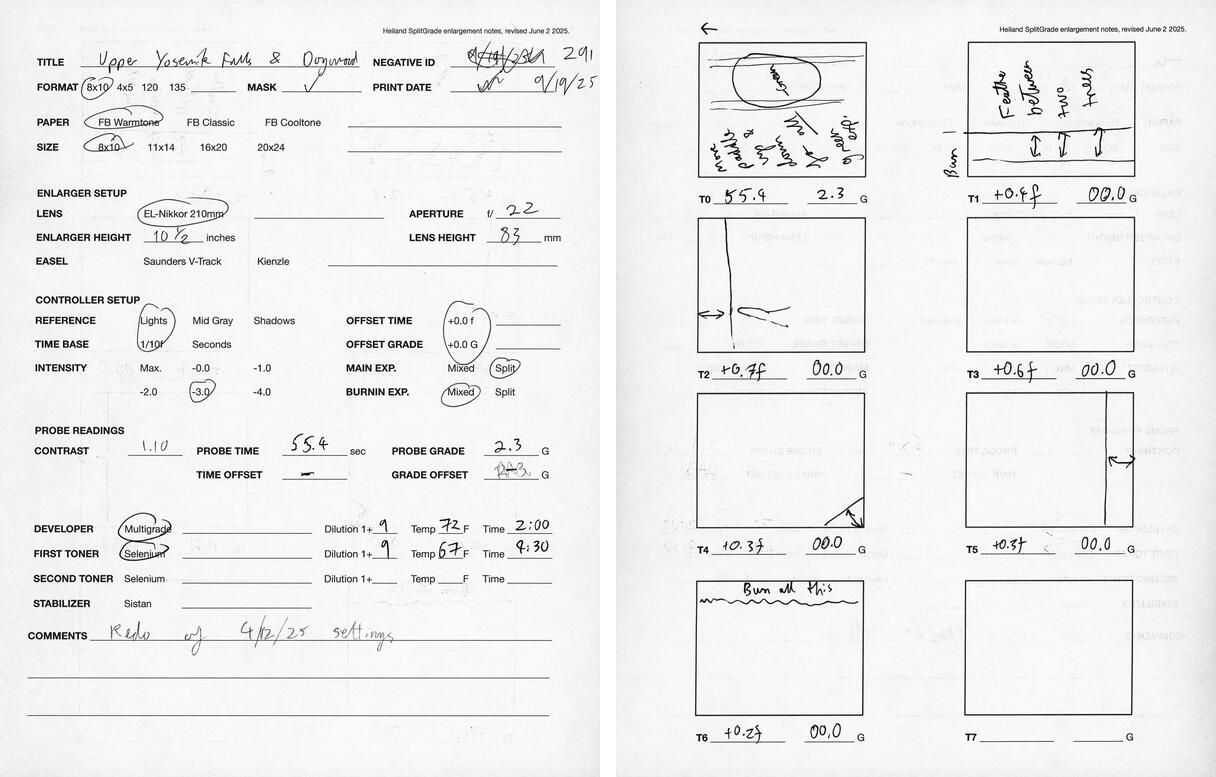 Heiland SplitGrade enlargement notes, revised June 2 2025.
TITLE Upper Yosemite Falls & Dogwood NEGATIVE ID 291
FORMAT 8x10 4x5 120 135 MASK ✓ PRINT DATE 9/19/25
PAPER FB Warmtone FB Classic FB Cooltone
SIZE 8x10 11x14 16x20 20x24
ENLARGER SETUP
LENS EL-Nikkor 210mm APERTURE f/ 22
ENLARGER HEIGHT 10 1/2 inches LENS HEIGHT 83 mm
EASEL Saunders V-Track Kienzle
CONTROLLER SETUP
REFERENCE Lights Mid Gray Shadows OFFSET TIME +0.0 f
TIME BASE 1/10f Seconds OFFSET GRADE +0.0 G
INTENSITY Max. -0.0 -1.0 MAIN EXP. Mixed Split
-2.0 -3.0 -4.0 BURNIN EXP. Mixed Split
PROBE READINGS
CONTRAST 1.10 PROBE TIME 55.4 sec PROBE GRADE 2.3 G
TIME OFFSET - GRADE OFFSET G
DEVELOPER Multigrade Dilution 1+ 9 Temp 72 F Time 2:00
FIRST TONER Selenium Dilution 1+ 9 Temp 67 F Time 4:30
SECOND TONER Selenium Dilution 1+ Temp F Time
STABILIZER Sistan
COMMENTS Redo of 4/12/25 settings
Heiland SplitGrade enlargement notes, revised June 2 2025.
←
more
paddle
up &
down
T0 55.4 2.3 G
Burn
Feather
between
two
trees
T1 +0.4f 00.0 G
T2 +0.7f 00.0 G
T3 +0.6f 00.0 G
T4 +0.3f 00.0 G
T5 +0.3f 00.0 G
Burn all this
T6 +0.2f 00.0 G
T7 G